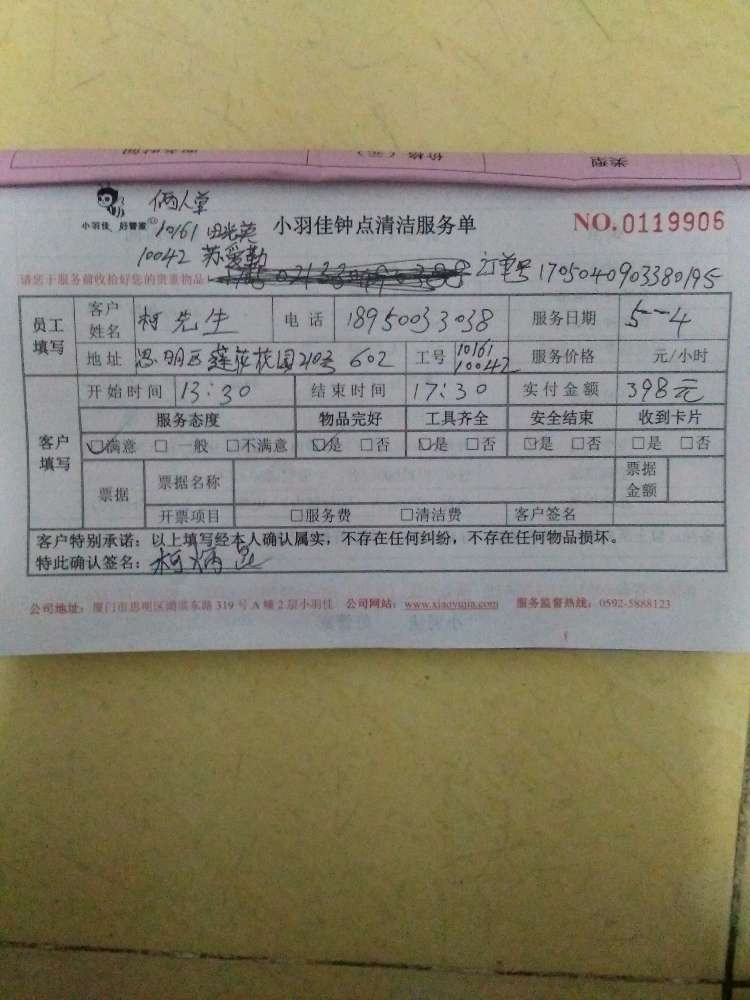 类型 价格（元） 服务时间
俩人单
小羽佳 好管家
10161 田光英 小羽佳钟点清洁服务单 NO.0119906
10042 苏爱勤
请您于服务前收拾好您的贵重物品 订单号 1705040903380195
员工填写 客户姓名 柯先生 电话 18950033038 服务日期 5-4
地址 思明区莲花花园210号 602 工号 10161 10042 服务价格 元/小时
客户填写 开始时间 13:30 结束时间 17:30 实付金额 398元
服务态度 物品完好 工具齐全 安全结束 收到卡片
满意 □ 一般 □不满意 是 □否 是 □否 是 □否 □是 □否
票据 票据名称 票据金额
开票项目 □服务费 □清洁费 客户签名
客户特别承诺：以上填写经本人确认属实，不存在任何纠纷，不存在任何物品损坏。
特此确认签名：柯炳
公司地址：厦门市思明区湖滨东路 319 号 A 幢 2 层小羽佳 公司网站：www.xiaoyujia.com 服务监督热线：0592-5888123